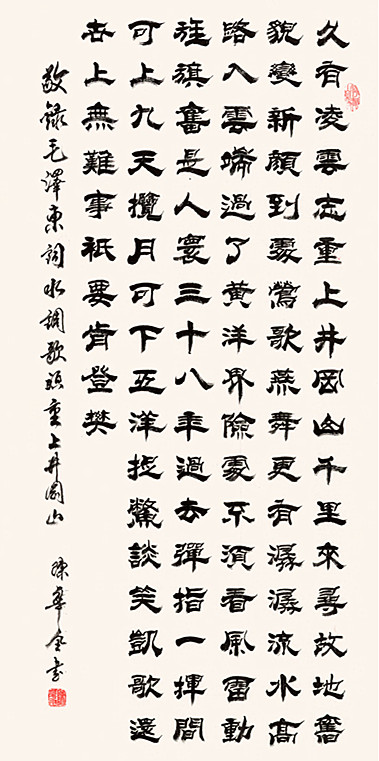 久有凌雲志重上井岡山千里來尋故地舊
貌變新顏到處鶯歌燕舞更有潺潺流水高
路入雲端過了黃洋界險處不須看風雷動
旌旗奮是人寰三十八年過去彈指一揮間
可上九天攬月可下五洋捉鱉談笑凱歌還
世上無難事衹要肯登攀
敬錄毛澤東詞水調歌頭重上井岡山 陳華金書